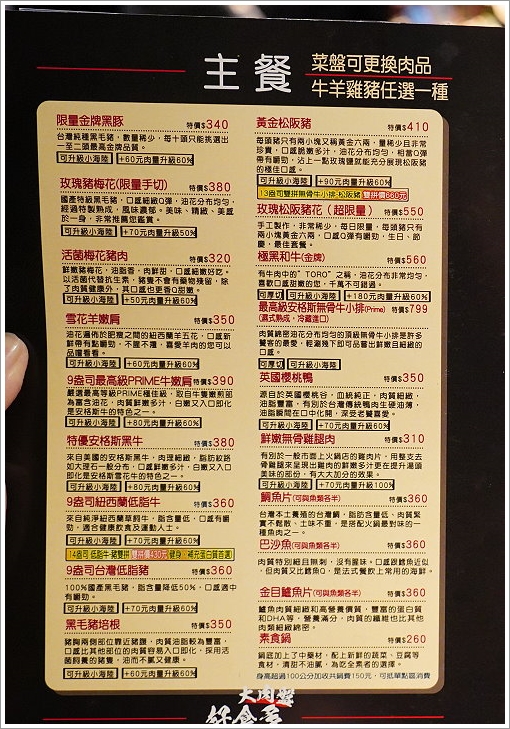 主餐
菜盤可更換肉品
牛羊雞豬任選一種
限量金牌黑豚 特價$340
台灣純種黑毛豬，數量稀少，每十頭只能挑選出
一至二頭最高金牌品質。
可升級小海陸 +60元肉量升級60%
玫瑰豬梅花(限量手切) 特價$380
國產特級黑毛豬，口感細緻Q彈，油花分布均勻，
經過特製熟成，風味濃郁。美味、精緻、美感
於一身，非常推薦您鑑賞。
可升級小海陸 +70元肉量升級50%
活菌梅花豬肉 特價$320
鮮嫩豬梅花，油脂香，肉鮮甜，口感細嫩好吃。
以活菌代替抗生素，豬隻不會有藥物殘留，除
了肉質健康外，其口感也更香Q甜嫩。
可升級小海陸 +50元肉量升級60%
雪花羊嫩肩 特價$350
油花遍佈於肥瘦之間的紐西蘭羊五花，口感新
鮮帶有點嚼勁，不腥不羶，喜愛羊肉的您可以
品嚐看看。
可升級小海陸 +60元肉量升級60%
9盎司最高級PRIME牛嫩肩 特價$390
嚴選最高等級PRIME種佳級，取自牛隻嫩煎部
為富含油花，肉質鮮嫩多汁，白嫩又入口即化
是安格斯牛的特色之一。
可升級小海陸 +80元肉量升級60%
特優安格斯黑牛 特價$380
來自美國的安格斯黑牛，肉理細緻，脂肪紋路
如大理石一般分布，口感鮮嫩多汁，白嫩又入口
即化是安格斯雪花牛的特色之一。
可升級小海陸 +80元肉量升級60%
9盎司紐西蘭低脂牛 特價$360
來自純淨紐西蘭草飼牛，脂肪含量低，口感有嚼
勁，適合健康飲食及運動人士。
可升級小海陸 +70元肉量升級60%
14盎司 低脂牛·豬雙拼 雙拼價430元 健身、補充蛋白質首選
9盎司台灣低脂豬 特價$360
100%國產黑毛豬，脂含量降低50%，口感適中
有嚼勁。
可升級小海陸 +70元肉量升級60%
黑毛豬培根 特價$350
豬胸兩側部位靠近豬腰，肉質油脂較為豐富，
口感比其他部位的肉質容易入口即化，採用活
菌飼養的豬隻，油而不膩又健康。
可升級小海陸 +60元肉量升級60%
黃金松阪豬 特價$410
每頭豬只有兩小塊又稱黃金六兩，量稀少且非常
珍貴，口感脆嫩多汁，油花分布均勻，相當Q彈
帶有嚼勁，沾上一點玫瑰鹽就能充分展現松阪豬
的極佳口感。
可升級小海陸 +90元肉量升級60%
13盎司雙拼無骨牛小排·松阪豬 雙拼價860元
玫瑰松阪豬花（超限量） 特價$550
手工製作，非常稀少，每日限量，每頭豬只有
兩小塊黃金六兩，口感Q彈有嚼勁，生日、節
慶，最佳賞餐。
極黑和牛(金牌) 特價$560
有牛肉中的"TORO"之稱，油花分布非常均勻，
喜歡口感甜嫩的您，千萬不可錯過。
可厚切 可升級小海陸 +180元肉量升級60%
最高級安格斯無骨牛小排(Prime) 特價$799
(濕式熟成，冷藏進口)
肉質綿密油花分布均勻的頂級無骨牛小排是許多
饕客的最愛，輕涮幾下即可品嘗出鮮嫩且細緻的口
感。
可厚切 可升級小海陸
英國櫻桃鴨 特價$350
源自於英國櫻桃谷，血統純正，肉質細緻，
油脂豐富，有別於台灣傳統鴨肉生硬油薄，
油脂瞬間在口中化開，深受老饕喜愛。
可升級小海陸 +70元肉量升級60%
鮮嫩無骨雞腿肉 特價$310
有別於一般市面上火鍋店的雞肉片，用整支去
骨雞腿來呈現出雞肉的鮮嫩多汁更在提升湯頭
美味的部份，有大大加分的效果。
可升級小海陸 +70元肉量升級100%
鯛魚片(可與魚類各半) 特價$360
台灣不土養殖的台灣鯛，脂肪含量低，肉質緊
實不鬆散，土味不重，是搭配火鍋最對味的一
種魚肉之一。
巴沙魚(可與魚類各半) 特價$360
肉質特別細且無刺，沒有腥味。口感跟鱈魚近似
，但肉質又比鱈魚Q，是法式餐飲上常用的海鮮。
金目鱸魚片(可與魚類各半) 特價$360
鱸魚肉質細緻和高營養價質，豐富的蛋白質
和DHA等，營養滿分，肉質的纖維也比其他
肉類細緻綿密。
素食鍋 特價$260
鍋底加上了中藥材，配上新鮮的蔬菜、豆腐等
食材，清甜不油膩，為吃全素者的選擇。
身高超過100公分加收共鍋費150元，可抵單點區消費
大肉盤
好食多